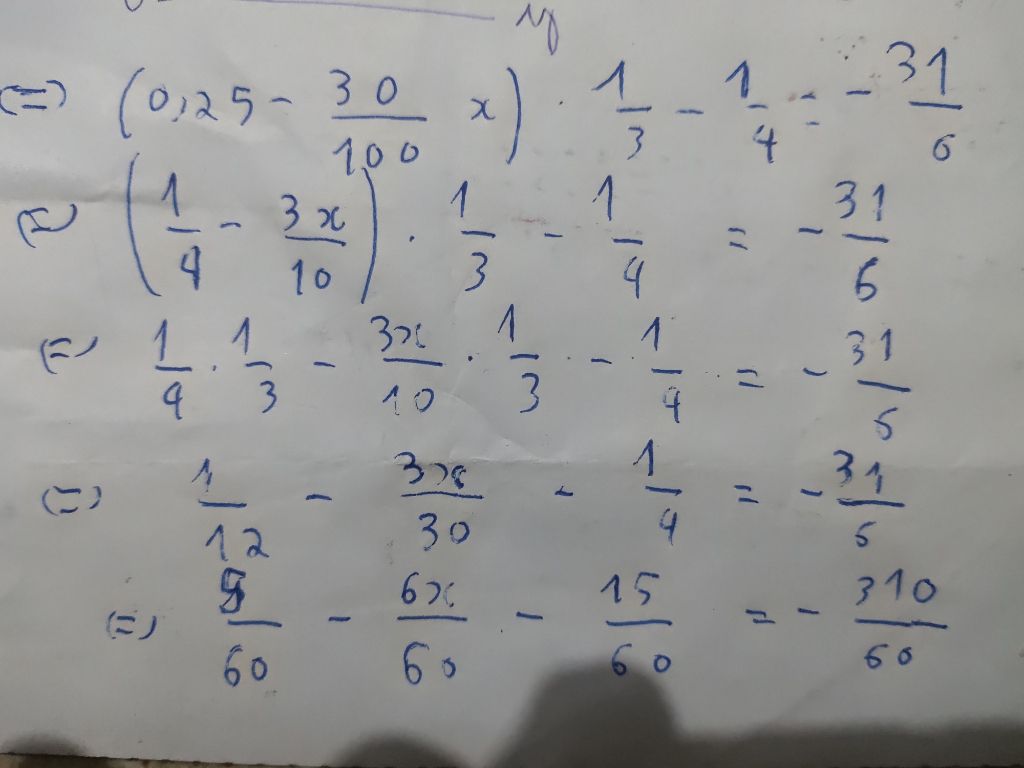 (=) (0,25 - 30/100 x) . 1/3 - 1/4 = - 31/6
(=) (1/4 - 3x/10) . 1/3 - 1/4 = - 31/6
(=) 1/4 . 1/3 - 3x/10 . 1/3 - 1/4 = - 31/6
(=) 1/12 - 3x/30 - 1/4 = - 31/6
(=) 5/60 - 6x/60 - 15/60 = - 310/60